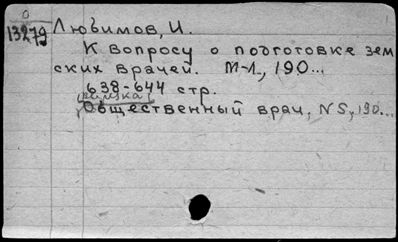 0
13279
Любимов, И.
К вопросу о подготовке зем
ских врачей. М-Л., 190...
638-644 стр.
Общественный врач, N 5, 190...